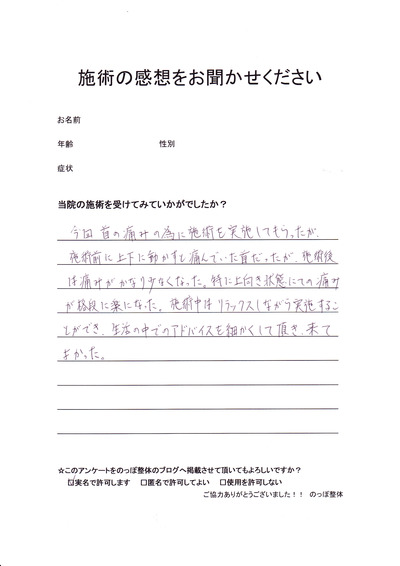 施術の感想をお聞かせください
お名前
年齢 性別
症状
当院の施術を受けてみていかがでしたか？
今回 首の痛みの為に施術を実施してもらったが、
施術前に上下に動かすと痛んでいた首だったが、施術後
は痛みがかなり少なくなった。特に上向き状態にての痛み
が格段に楽になった。施術中はリラックスしながら実施するこ
とができ、生活の中でのアドバイスを細かくして頂き、来て
よかった。
☆このアンケートをのっぽ整体のブログへ掲載させて頂いてもよろしいですか？
☑実名で許可します □匿名で許可してよい □使用を許可しない
ご協力ありがとうございました！！ のっぽ整体